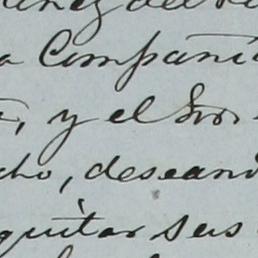 a Compañi
, y el Sor
cho, desean
quitar sus